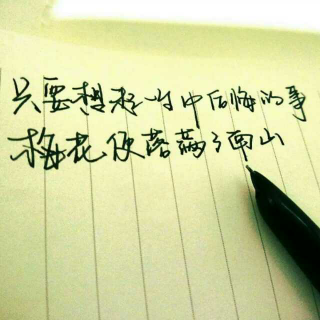 只要想起一生中后悔的事
梅花便落满了南山